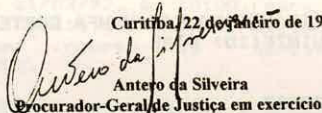 Curitiba, 22 de janeiro de 19
Antero da Silveira
Antero da Silveira
Procurador-Geral de Justiça em exercício